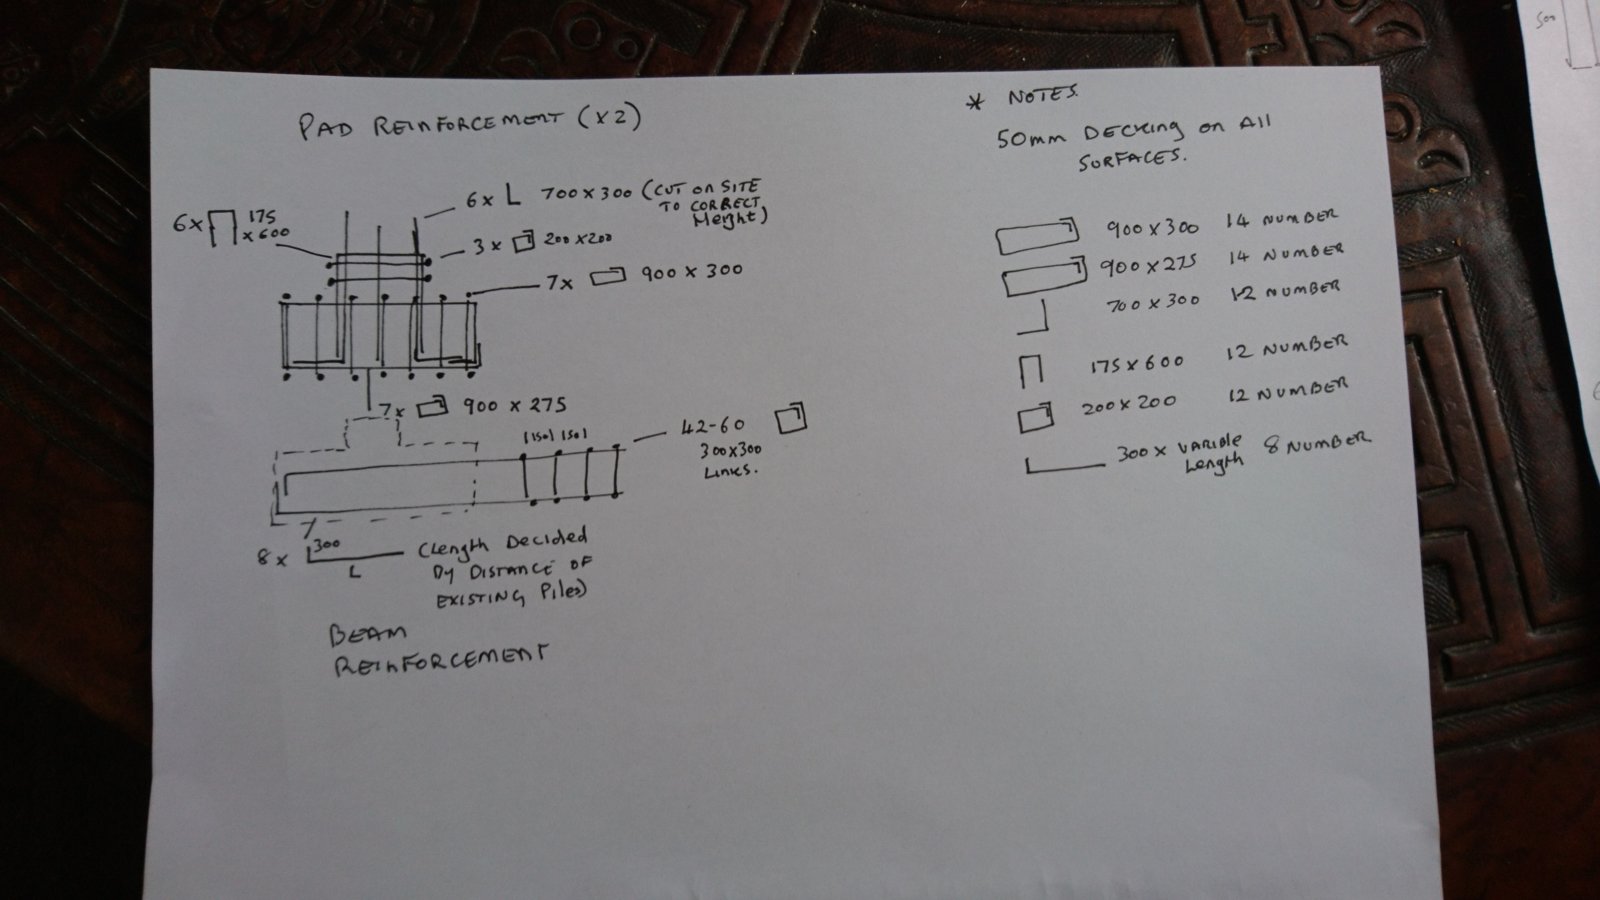 PAD REINFORCEMENT (X2)
6x L 700 x 300 (CUT ON SITE
TO CORRECT
Height)
6x 175
x 600
3 x 200 x 200
7x 900 x 300
7x 900 x 275
|150| 150|
42-60
300x300
LINKS.
8 x 300
L
(Length Decided
By DISTANCE OF
EXISTING Piles)
BEAM
REINFORCEMENT
* NOTES.
50mm DECKING on All
SURFACES.
900 x 300 14 NUMBER
900 x 275 14 NUMBER
700 x 300 12 NUMBER
175 x 600 12 NUMBER
200 x 200 12 NUMBER
300 x VARIBLE
Length 8 NUMBER
500